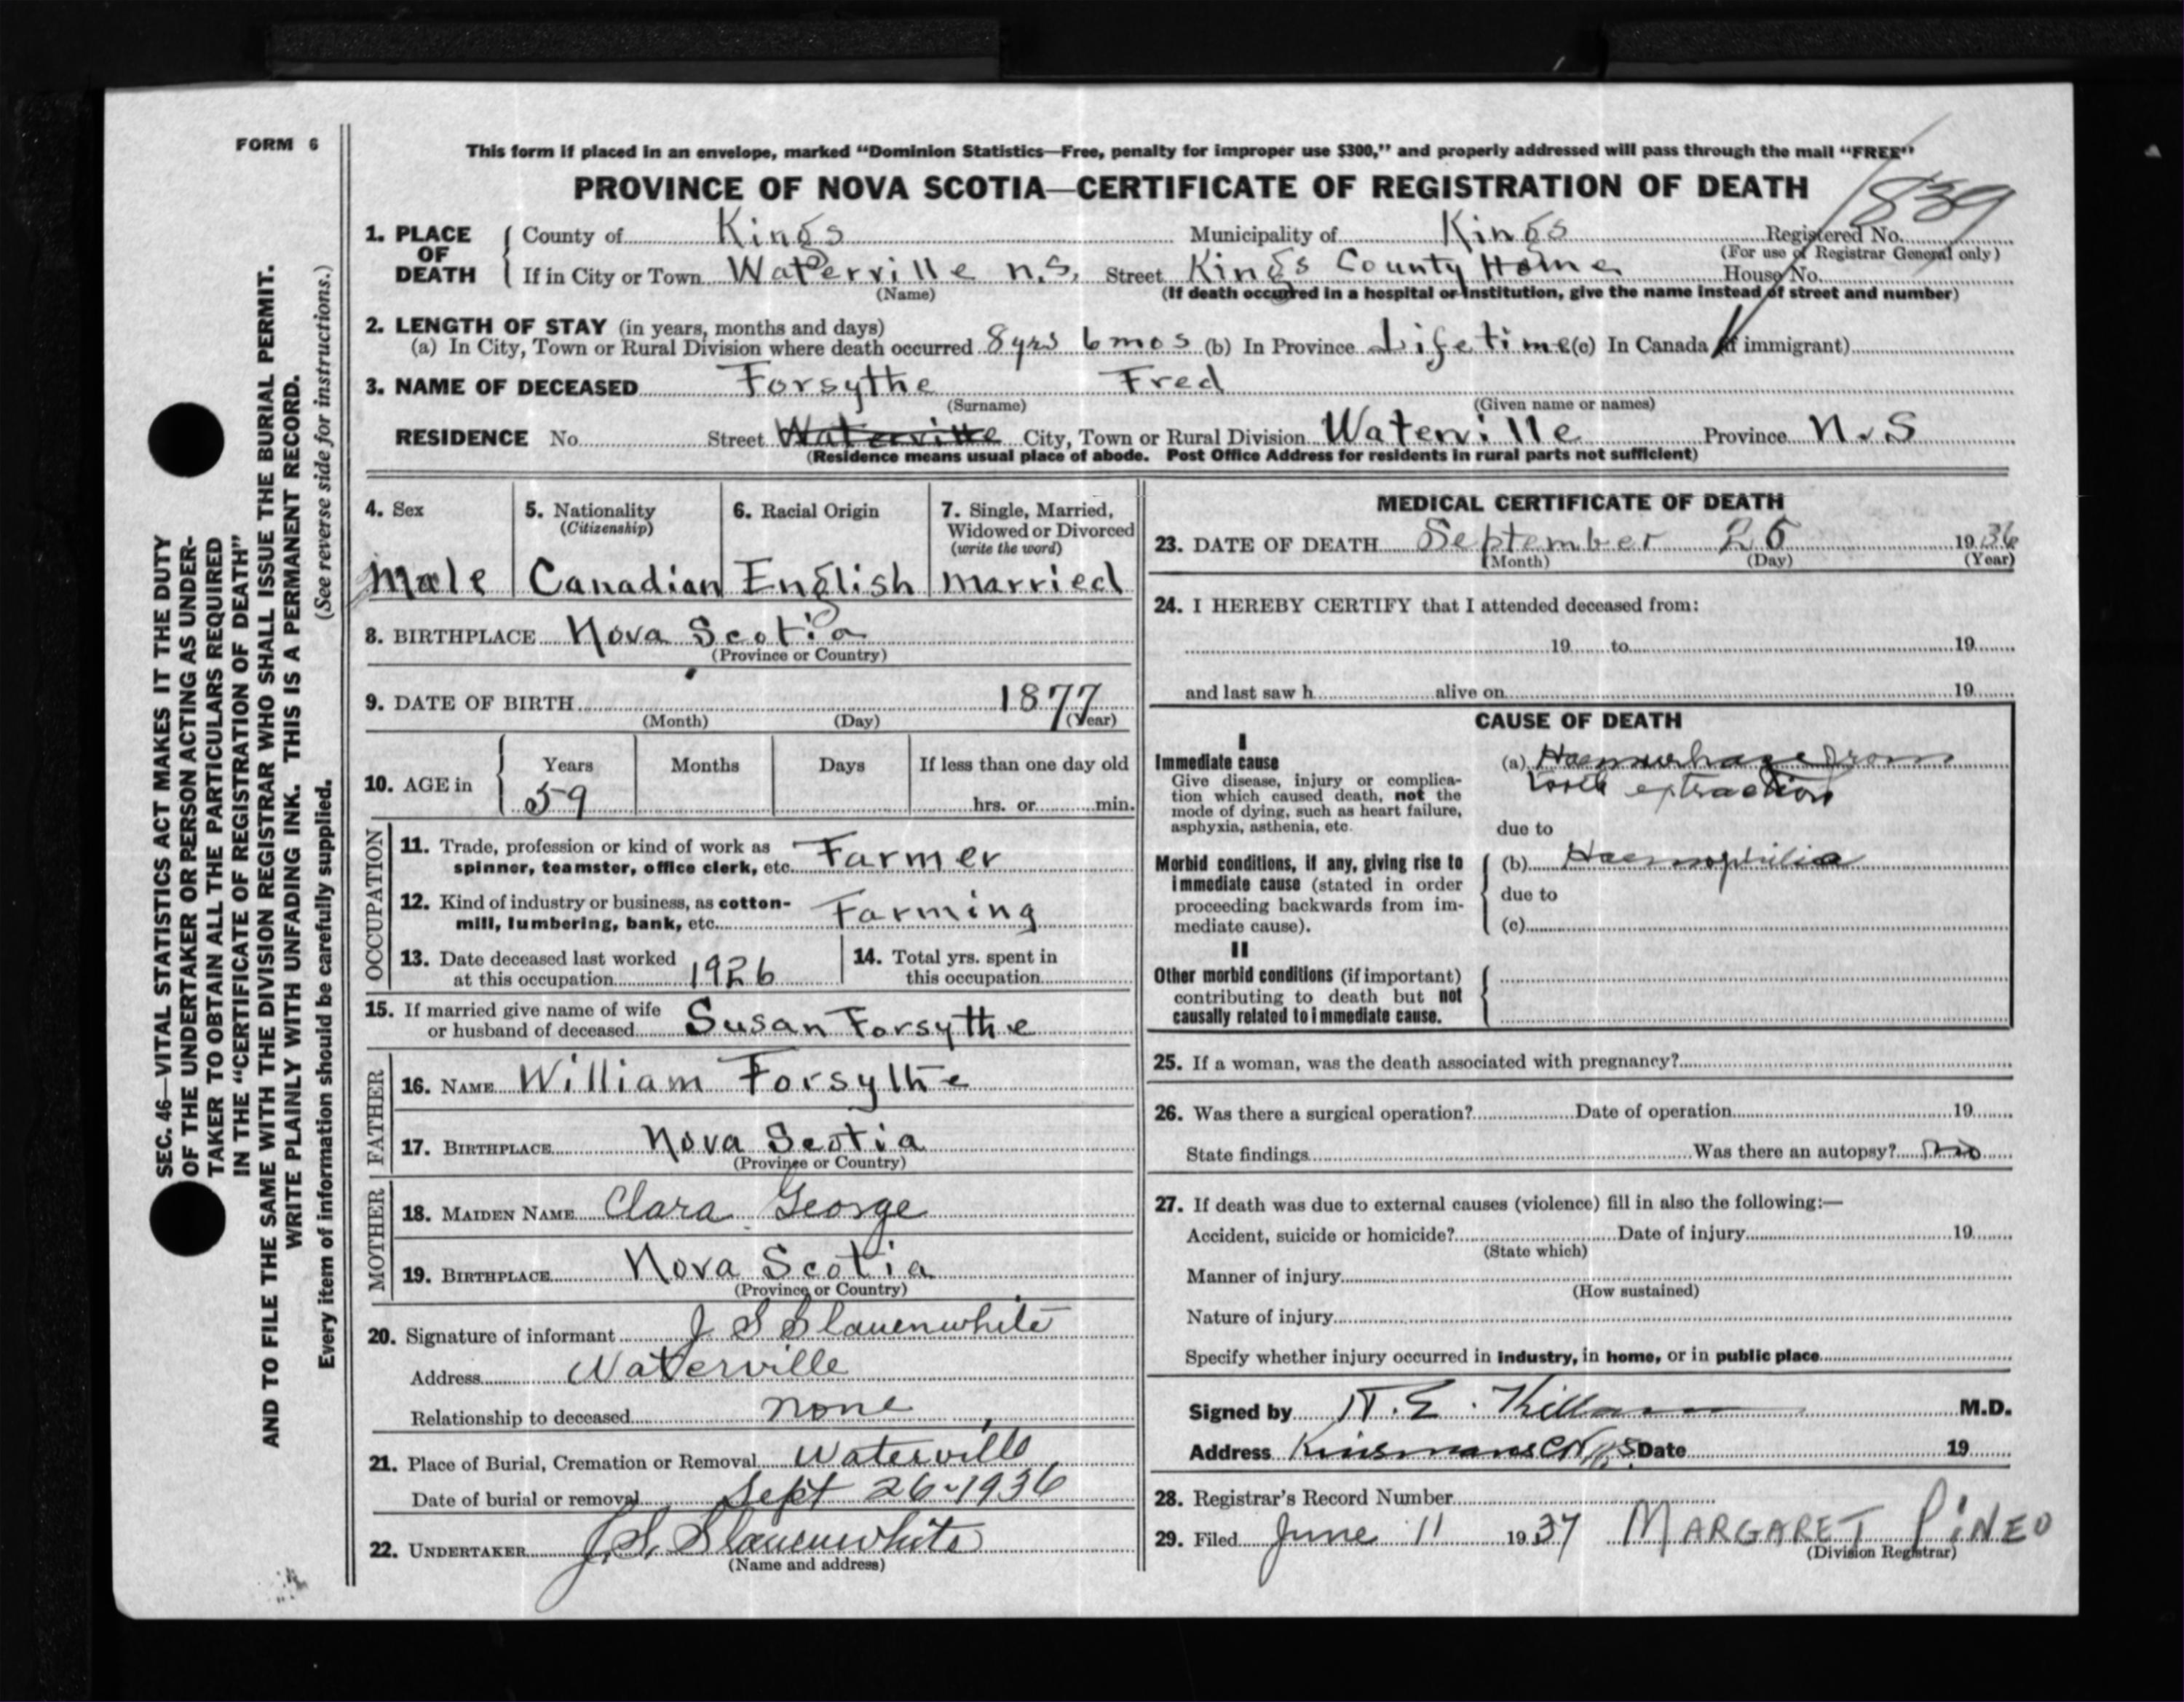 FORM 6
This form if placed in an envelope, marked “Dominion Statistics—Free, penalty for improper use $300,” and properly addressed will pass through the mail “FREE”
PROVINCE OF NOVA SCOTIA—CERTIFICATE OF REGISTRATION OF DEATH
1839
1. PLACE OF DEATH County of Kings Municipality of Kings Registered No.
(For use of Registrar General only)
If in City or Town Waterville N.S. Street Kings County Home House No.
(Name) (If death occurred in a hospital or institution, give the name instead of street and number)
2. LENGTH OF STAY (in years, months and days)
(a) In City, Town or Rural Division where death occurred 8 yrs 6 mos (b) In Province Lifetime (c) In Canada (if immigrant)
3. NAME OF DECEASED Forsythe Fred
(Surname) (Given name or names)
RESIDENCE No. Street Waterville City, Town or Rural Division Waterville Province N.S
(Residence means usual place of abode. Post Office Address for residents in rural parts not sufficient)
4. Sex 5. Nationality 6. Racial Origin 7. Single, Married,
(Citizenship) Widowed or Divorced
(write the word)
Male Canadian English Married
8. BIRTHPLACE Nova Scotia
(Province or Country)
9. DATE OF BIRTH 1877
(Month) (Day) (Year)
10. AGE in Years Months Days If less than one day old
59 hrs. or min.
OCCUPATION
11. Trade, profession or kind of work as
spinner, teamster, office clerk, etc. Farmer
12. Kind of industry or business, as cotton-
mill, lumbering, bank, etc. Farming
13. Date deceased last worked
at this occupation 1926
14. Total yrs. spent in
this occupation
15. If married give name of wife
or husband of deceased Susan Forsythe
FATHER
16. NAME William Forsythe
17. BIRTHPLACE Nova Scotia
(Province or Country)
MOTHER
18. MAIDEN NAME Clara George
19. BIRTHPLACE Nova Scotia
(Province or Country)
20. Signature of informant J S Slauenwhite
Address Waterville
Relationship to deceased none
21. Place of Burial, Cremation or Removal Waterville
Date of burial or removal Sept 26-1936
22. UNDERTAKER J. S. Slauenwhite
(Name and address)
MEDICAL CERTIFICATE OF DEATH
23. DATE OF DEATH September 1936
(Month) (Day) (Year)
24. I HEREBY CERTIFY that I attended deceased from:
19 to 19
and last saw h alive on 19
CAUSE OF DEATH
I
Immediate cause
Give disease, injury or complica-
tion which caused death, not the
mode of dying, such as heart failure,
asphyxia, asthenia, etc.
(a) Haemorrhage from
tooth extraction
due to
Morbid conditions, if any, giving rise to
immediate cause (stated in order
proceeding backwards from im-
mediate cause).
(b) Haemophilia
due to
(c)
II
Other morbid conditions (if important)
contributing to death but not
causally related to immediate cause.
25. If a woman, was the death associated with pregnancy?
26. Was there a surgical operation? Date of operation 19
State findings Was there an autopsy? no
27. If death was due to external causes (violence) fill in also the following:—
Accident, suicide or homicide? Date of injury 19
(State which)
Manner of injury
(How sustained)
Nature of injury
Specify whether injury occurred in industry, in home, or in public place
Signed by Killam M.D.
Address Date 19
28. Registrar's Record Number
29. Filed June 11 1937 MARGARET PINEO
(Division Registrar)
SEC. 46—VITAL STATISTICS ACT MAKES IT THE DUTY
OF THE UNDERTAKER OR PERSON ACTING AS UNDER-
TAKER TO OBTAIN ALL THE PARTICULARS REQUIRED
IN THE “CERTIFICATE OF REGISTRATION OF DEATH”
AND TO FILE THE SAME WITH THE DIVISION REGISTRAR WHO SHALL ISSUE THE BURIAL PERMIT.
WRITE PLAINLY WITH UNFADING INK. THIS IS A PERMANENT RECORD.
Every item of information should be carefully supplied. (See reverse side for instructions.)